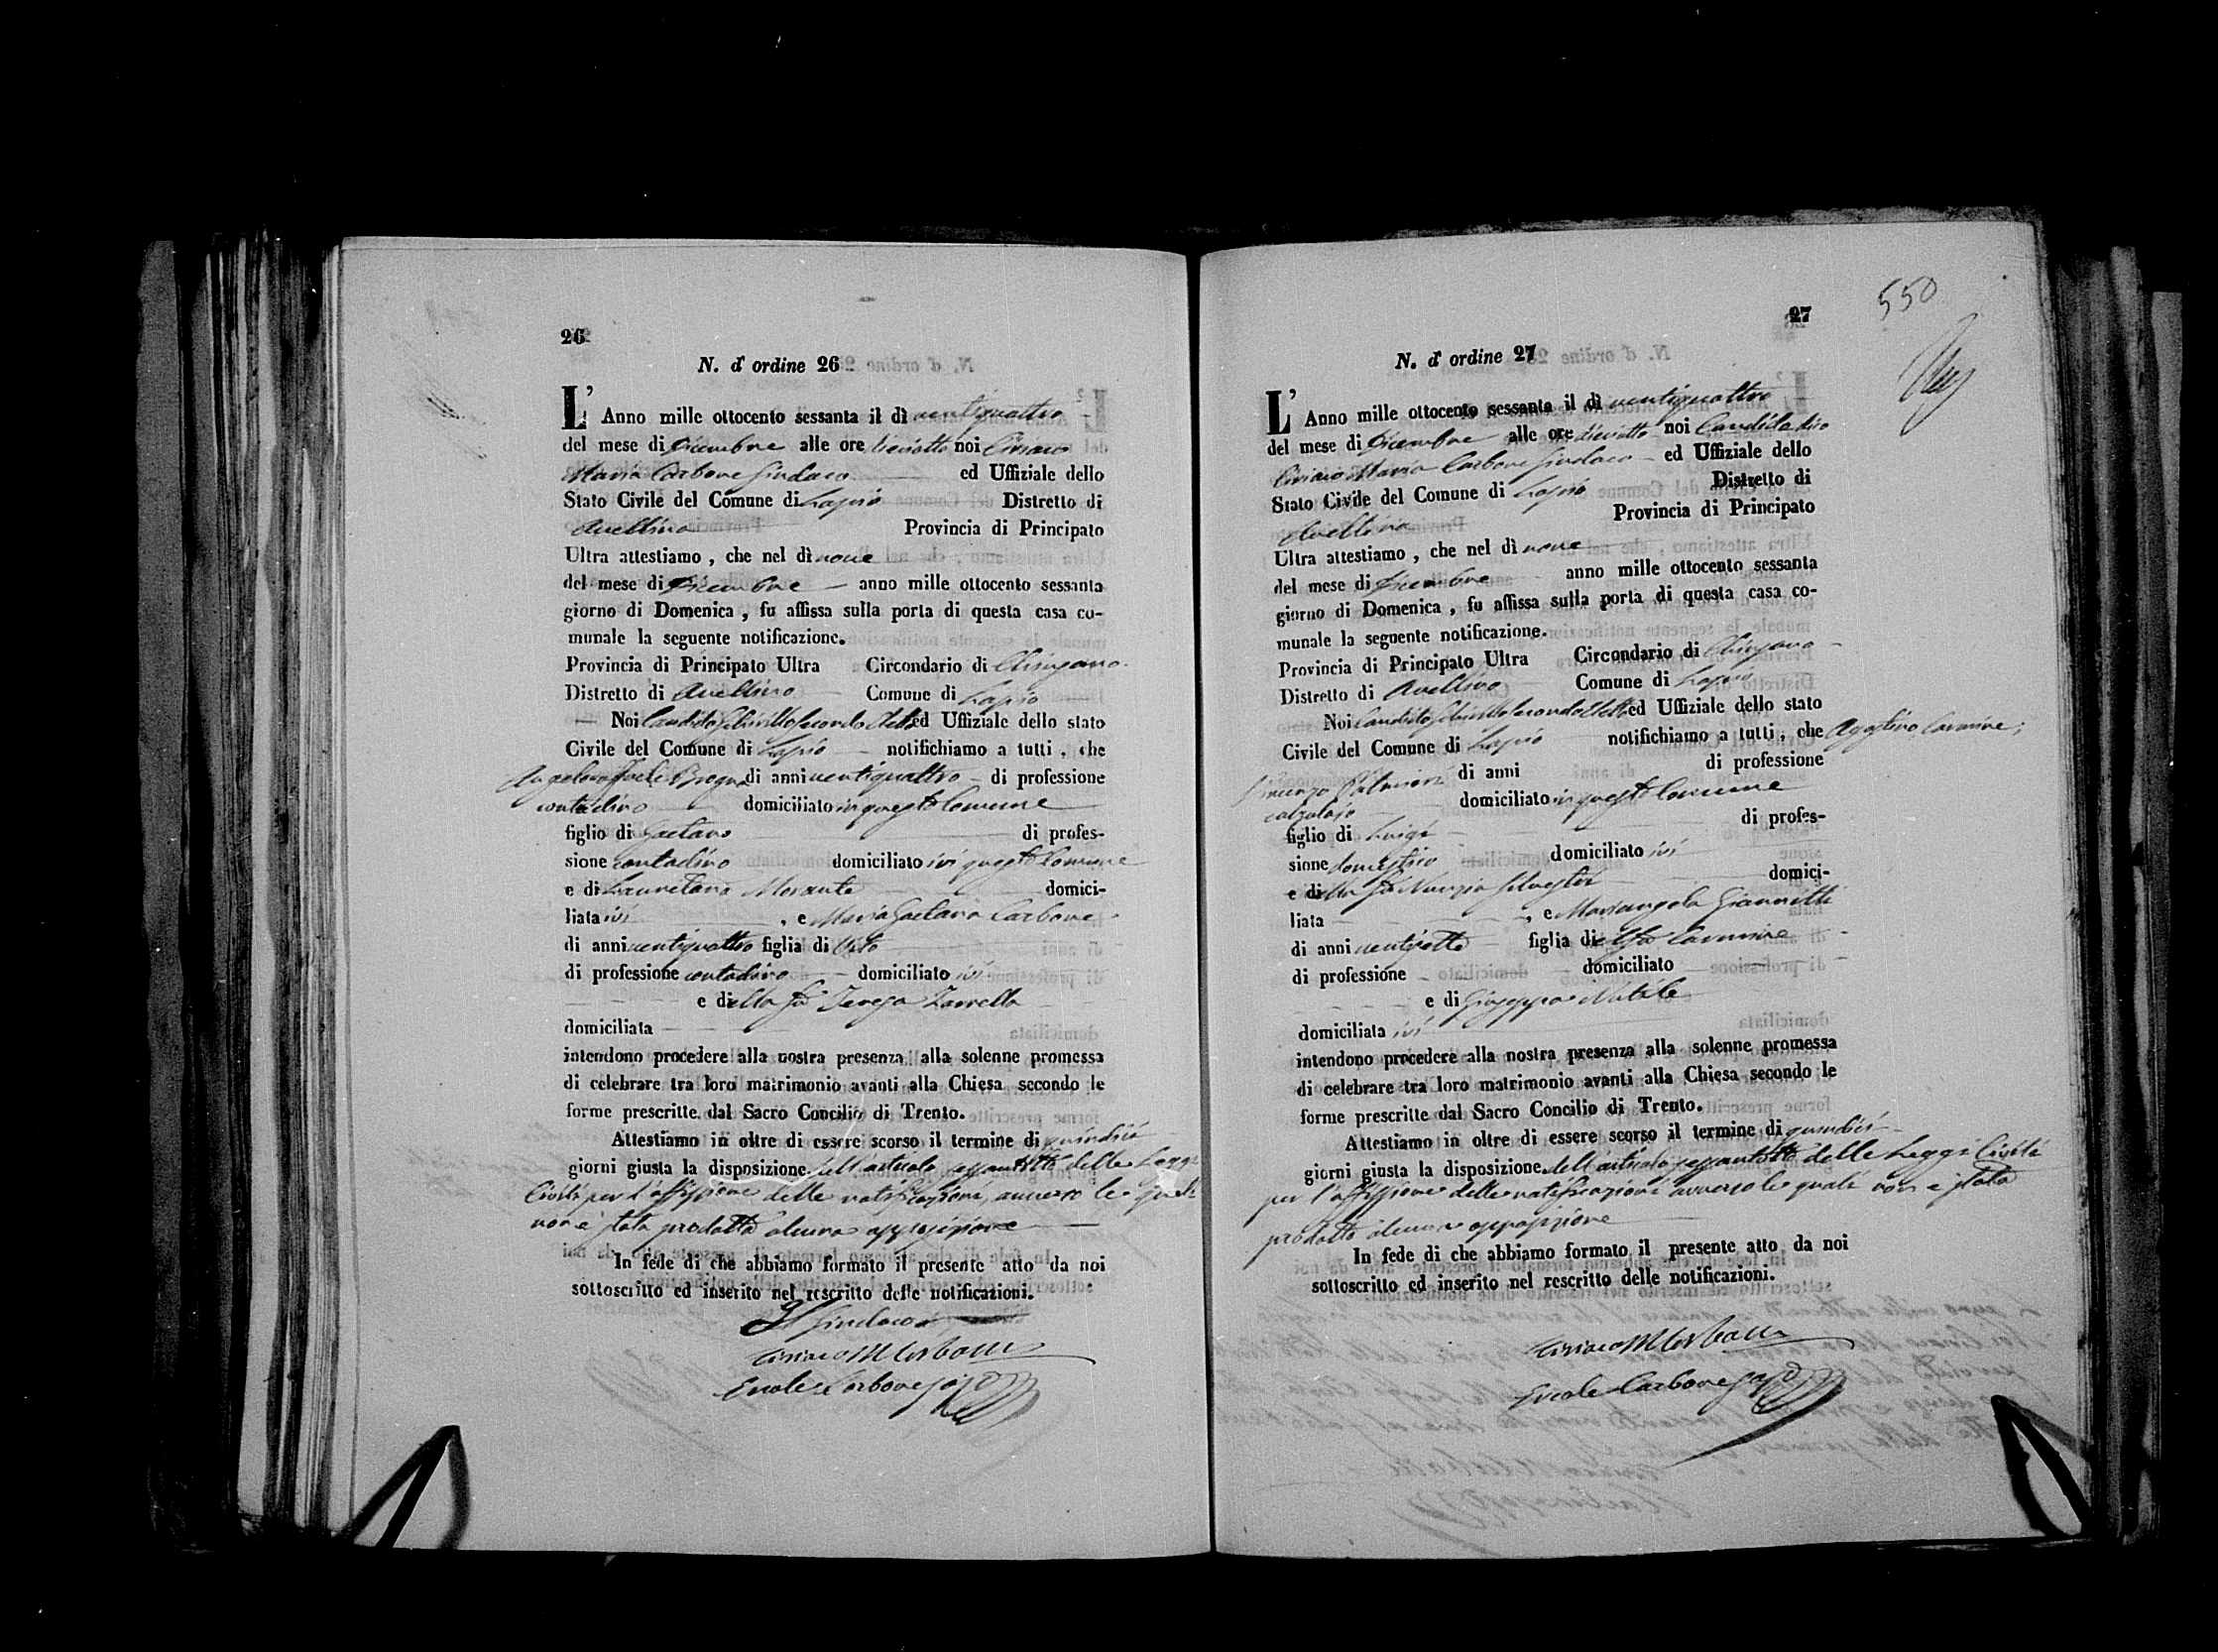 26
N. d' ordine 26
L' Anno mille ottocento sessanta il dì ventiquattro
del mese di Dicembre alle ore dieciotto noi Ciriaco
Maria Carbone Sindaco ed Uffiziale dello
Stato Civile del Comune di Lapio Distretto di
Avellino Provincia di Principato
Ultra attestiamo , che nel dì nove
del mese di Dicembre anno mille ottocento sessanta
giorno di Domenica , fu affissa sulla porta di questa casa co-
munale la seguente notificazione.
Provincia di Principato Ultra Circondario di Chiusano
Distretto di Avellino Comune di Lapio
Noi Candido Secondo Eletto ed Uffiziale dello stato
Civile del Comune di Lapio notifichiamo a tutti , che
di anni ventiquattro di professione
contadino domiciliato in questo Comune
figlio di Gaetano di profes-
sione contadino domiciliato in questo Comune
e di Lauretana Morante domici-
liata ivi , e Maria Gaetana Carbone
di anni ventiquattro figlia di Vito
di professione contadino domiciliato ivi
e di della fu Teresa Zarrella
domiciliata
intendono procedere alla nostra presenza alla solenne promessa
di celebrare tra loro matrimonio avanti alla Chiesa secondo le
forme prescritte dal Sacro Concilio di Trento.
Attestiamo in oltre di essere scorso il termine di quindici
giorni giusta la disposizione dell'articolo sessantotto delle Leggi
Civili per l'affissione delle notificazioni, avverso le quali
non è stata prodotta alcuna opposizione
In fede di che abbiamo formato il presente atto da noi
sottoscritto ed inserito nel rescritto delle notificazioni.
Il Sindaco
Ciriaco M Carbone
Ercole Carbone
27
550
N. d' ordine 27
L' Anno mille ottocento sessanta il dì ventiquattro
del mese di Dicembre alle ore dieciotto noi
Ciriaco Maria Carbone Sindaco ed Uffiziale dello
Stato Civile del Comune di Lapio Distretto di
Avellino Provincia di Principato
Ultra attestiamo , che nel dì nove
del mese di Dicembre anno mille ottocento sessanta
giorno di Domenica , fu affissa sulla porta di questa casa co-
munale la seguente notificazione.
Provincia di Principato Ultra Circondario di Chiusano
Distretto di Avellino Comune di Lapio
Noi Candido Secondo Eletto ed Uffiziale dello stato
Civile del Comune di Lapio notifichiamo a tutti , che Agostino Carmine
Vincenzo Palmieri di anni di professione
calzolajo domiciliato in questo Comune
figlio di Luigi di profes-
sione domestico domiciliato ivi
e di della fu Nunzia Silvestri domici-
liata , e Mariangela Giannitti
di anni ventisette figlia di del fu Carmine
di professione domiciliato
e di Giuseppa Natale
domiciliata ivi
intendono procedere alla nostra presenza alla solenne promessa
di celebrare tra loro matrimonio avanti alla Chiesa secondo le
forme prescritte dal Sacro Concilio di Trento.
Attestiamo in oltre di essere scorso il termine di quindici
giorni giusta la disposizione dell'articolo sessantotto delle Leggi Civili
per l'affissione delle notificazioni avverso le quali non è stata
prodotta alcuna opposizione
In fede di che abbiamo formato il presente atto da noi
sottoscritto ed inserito nel rescritto delle notificazioni.
Ciriaco M Carbone
Ercole Carbone